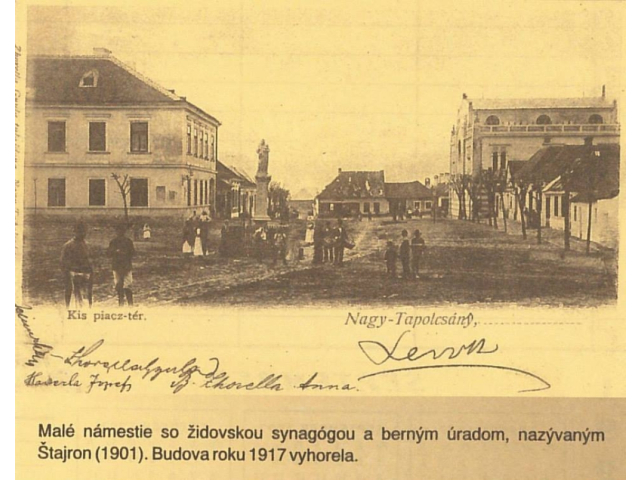 Kis piacz-tér.
Nagy-Tapolcsány,
Chorella Anna.
Malé námestie so židovskou synagógou a berným úradom, nazývaným
Štajron (1901). Budova roku 1917 vyhorela.